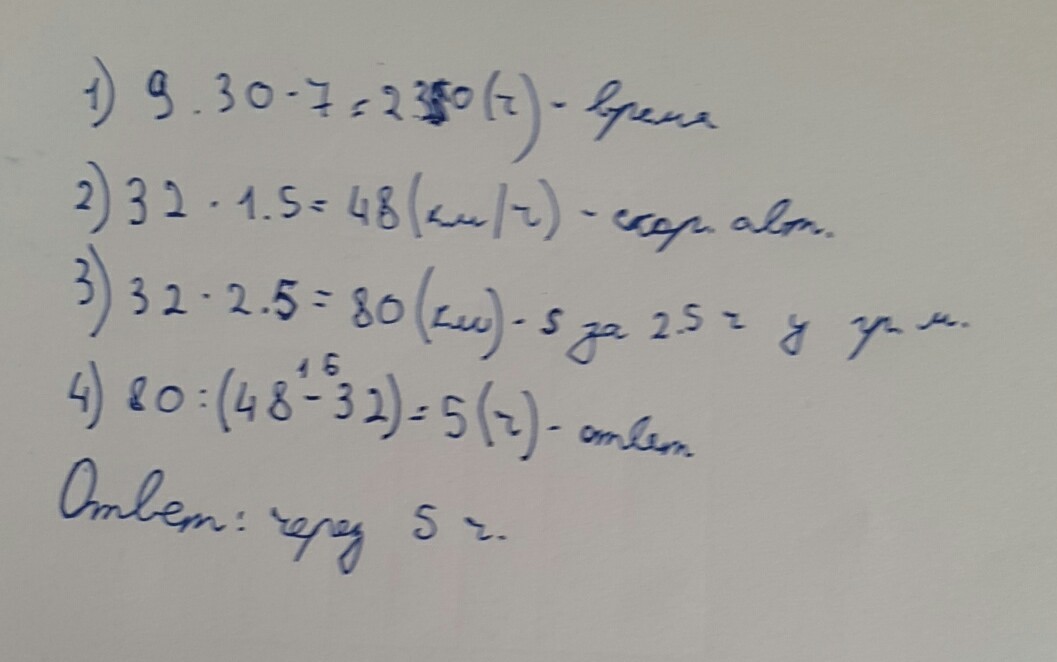 1) 9.30-7=230(ч)- время
2) 32·1.5=48(км/ч)- скор. авт.
3) 32·2.5=80(км)- s за 2.5 ч у гр. м.
16
4) 80:(48-32)=5(ч)- ответ
Ответ: через 5 ч.